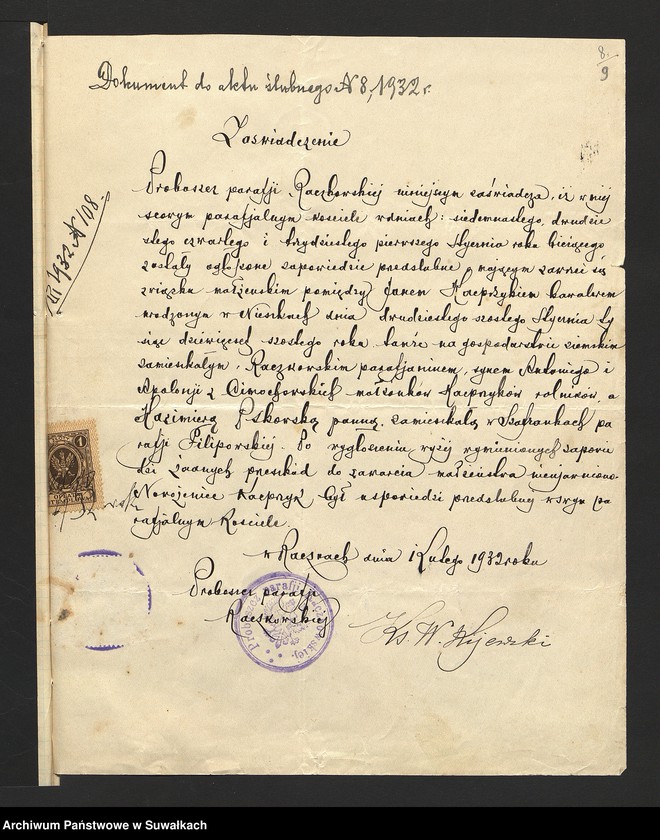 8.
9
Dokument do aktu ślubnego N 8, 1932 r.
Zaświadczenie
III 1932 N 108.
Proboszcz parafji Raczkowskiej niniejszym zaświadcza, iż w miej
scowym parafjalnym kościele w dniach: siedemnastego, drudzie
stego czwartego i trzydziestego pierwszego Stycznia roku bieżącego
zostały ogłoszone zapowiedzie przedślubne o mającym zawrzeć się
związku małżeńskim pomiędzy Janem Kacprzykiem kawalerem
urodzonym w dnia drudziestego szóstego Stycznia ty
siąc dziewięćset szóstego roku tamże na gospodarstwie ziemskim
zamieszkałym, Raczkowskim parafjaninem, synem Antoniego i
Apolonji z Cimochowskich małżonków Kacprzyków rolników, a
Kazimierą panną, zamieszkałą w Szafrankach pa
rafji Filipowskiej. Po wygłoszeniu wyżej wymienionych zapowie
dzi żadnych przeszkód do zawarcia małżeństwa nieujawniono.
Nowożeniec Kacprzyk był u spowiedzi przedślubnej w swym pa
rafjalnym Kościele.
w Raczkach dnia 1 Lutego 1932 roku
Proboszcz parafji
Raczkowskiej
Ks. W. Kijewski
Proboszcz parafji Raczkowskiej
1
Archiwum Państwowe w Suwałkach